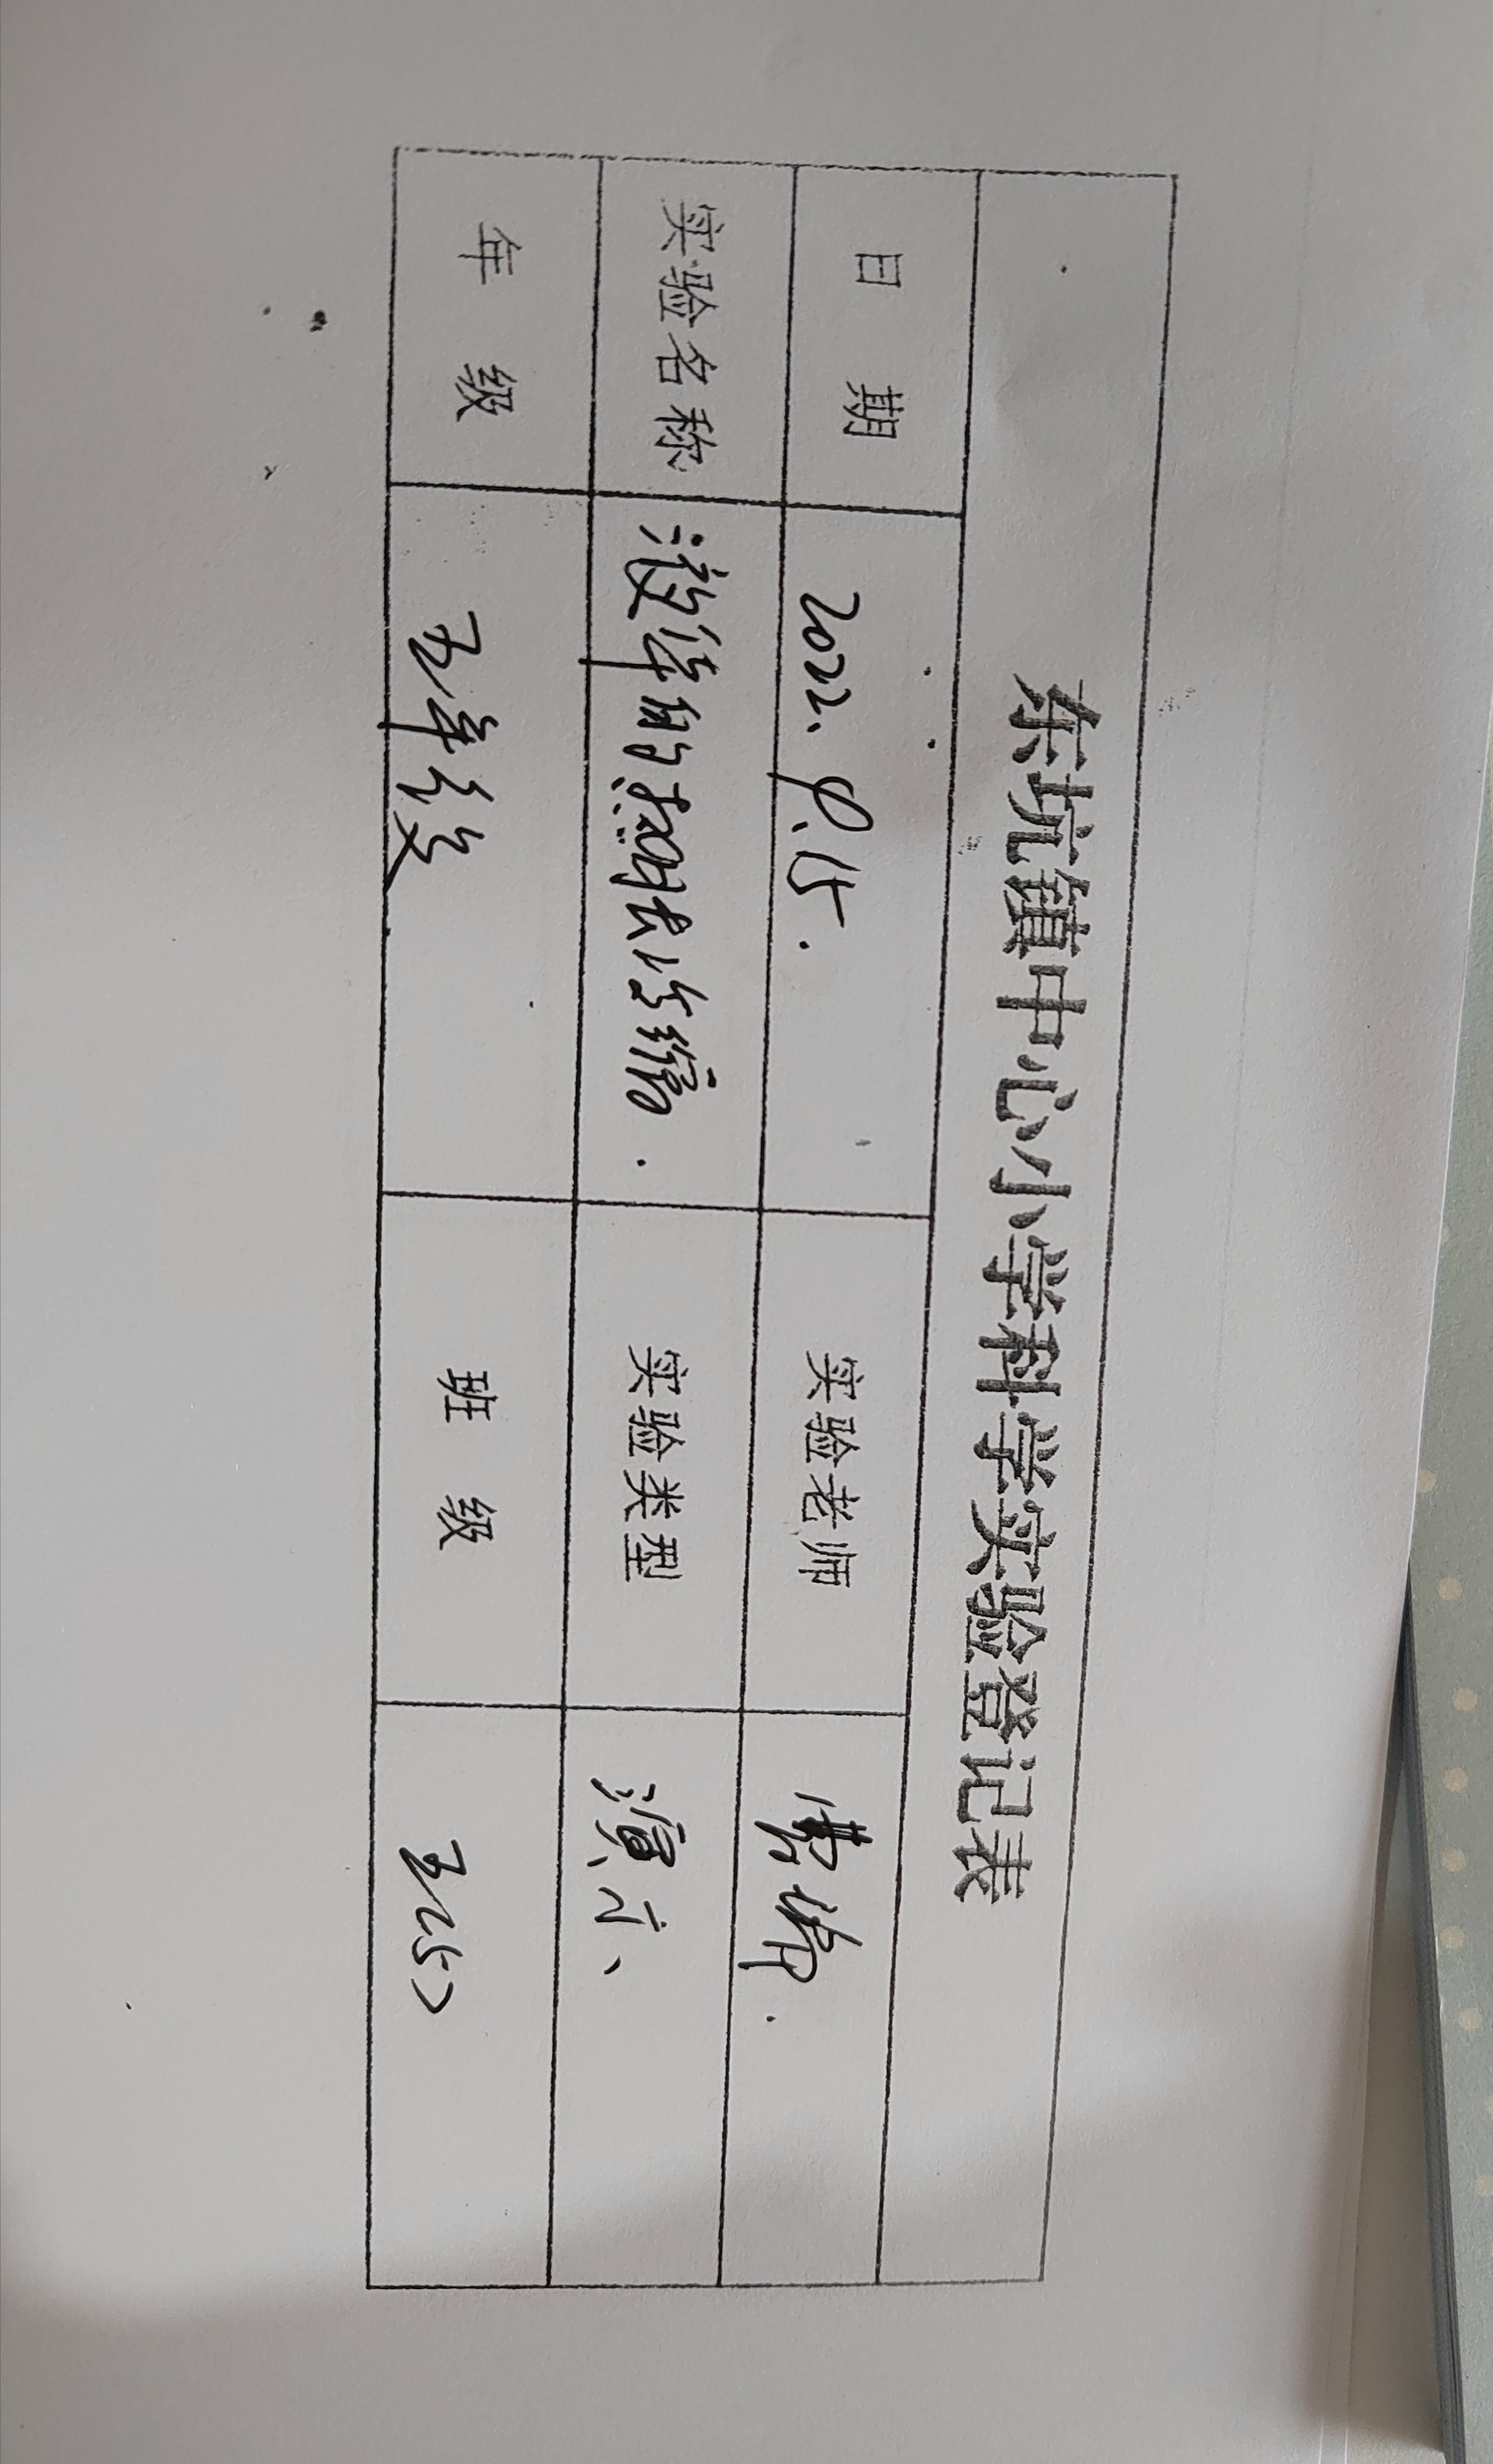 东坑镇中心小学科学实验登记表
日 期 2022.9.15. 实验老师
实验名称 液体的热胀冷缩. 实验类型 演示、
年 级 五年级 班 级 五(5)